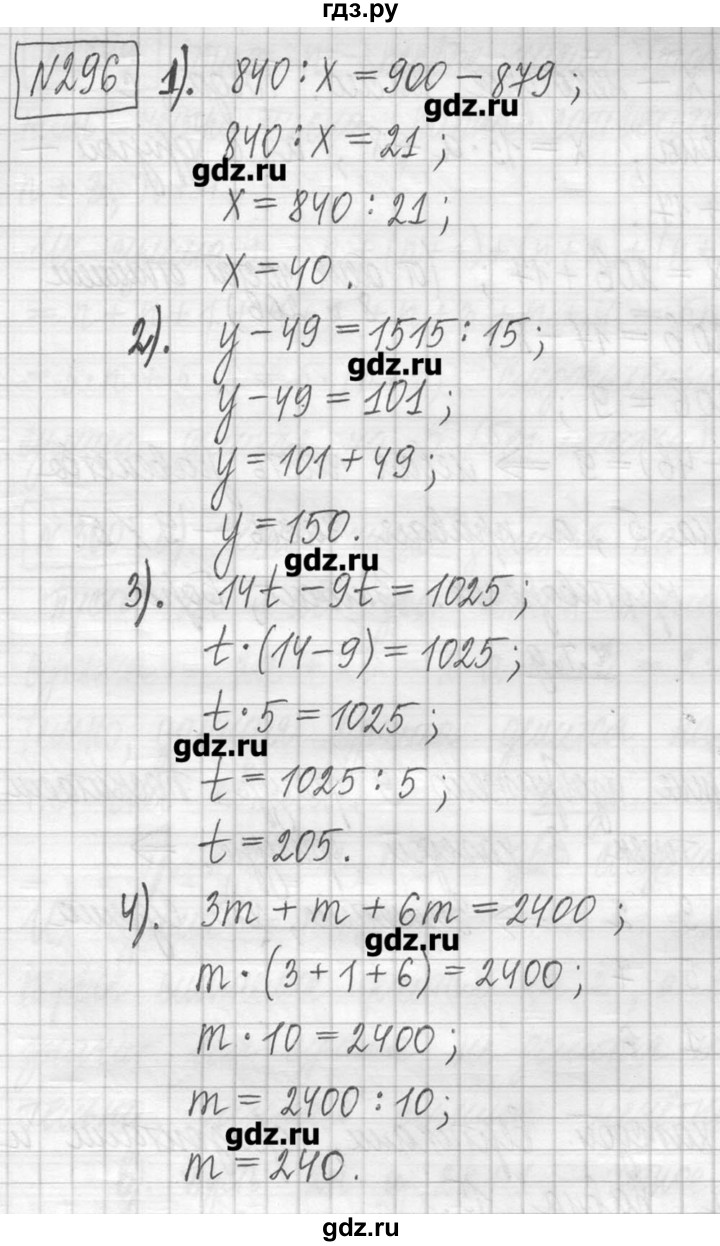 гдз.ру
№296 1). 840 : x = 900 − 879 ;
gdz.ru
840 : x = 21 ;
gdz.ru
x = 840 : 21 ;
x = 40 .
2). y − 49 = 1515 : 15 ;
gdz.ru
y − 49 = 101 ;
y = 101 + 49 ;
y = 150.
gdz.ru
3). 14t − 9t = 1025 ;
t · (14 − 9) = 1025 ;
t · 5 = 1025 ;
gdz.ru
t = 1025 : 5 ;
t = 205 .
4). 3m + m + 6m = 2400 ;
gdz.ru
m · (3 + 1 + 6) = 2400 ;
m · 10 = 2400 ;
m = 2400 : 10 ;
gdz.ru
m = 240 .
gdz.ru